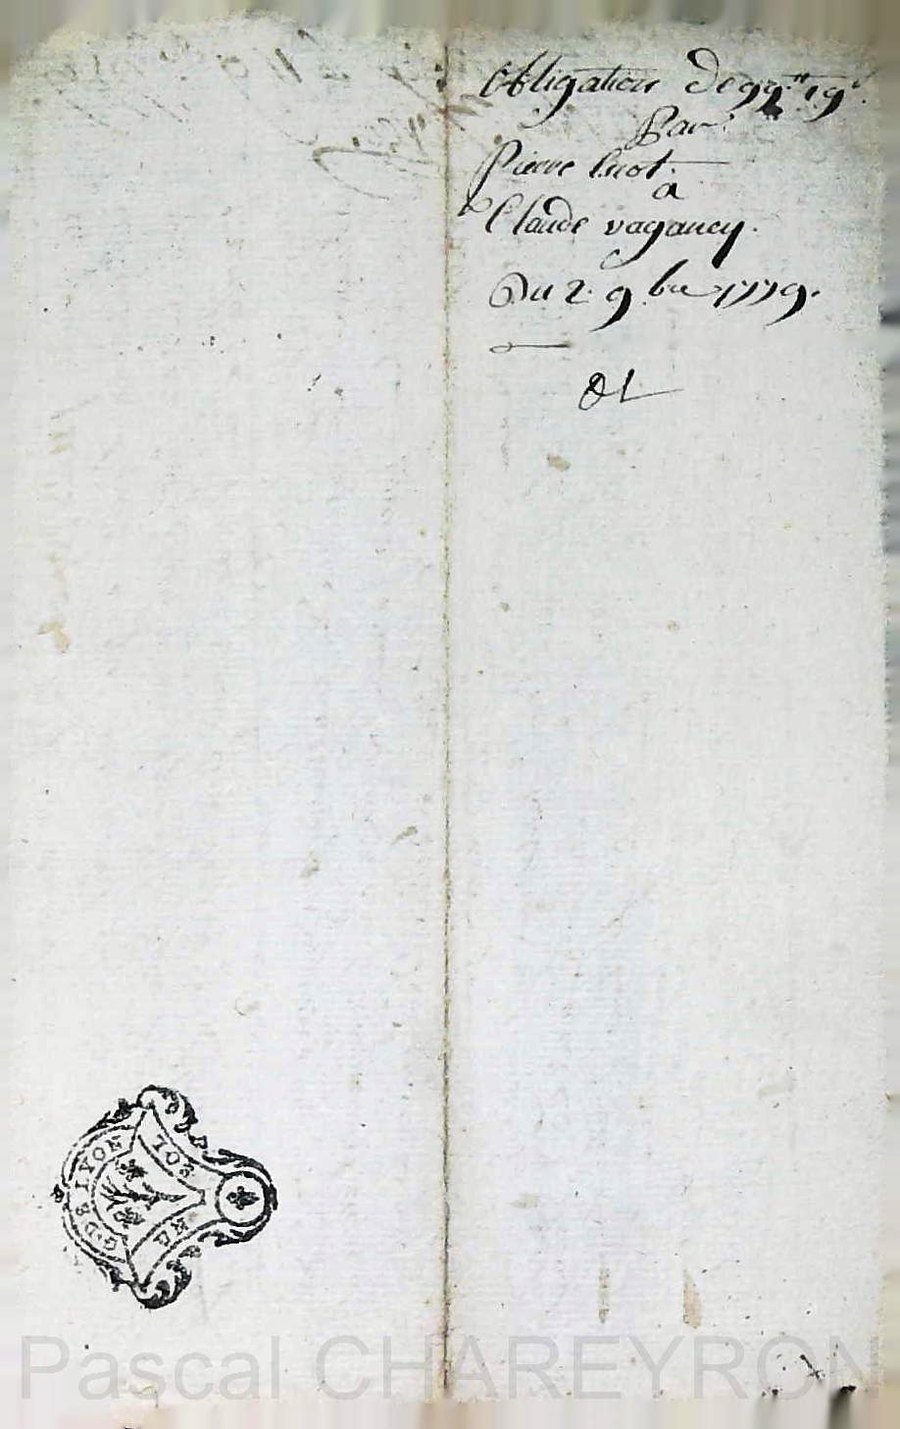 obligation de 99# 19s.
Par
Pierre
a
Claude vagancy.
Du 2. 9.bre 1779.
G. DE LYON
SOL
UN
Pascal CHAREYRON